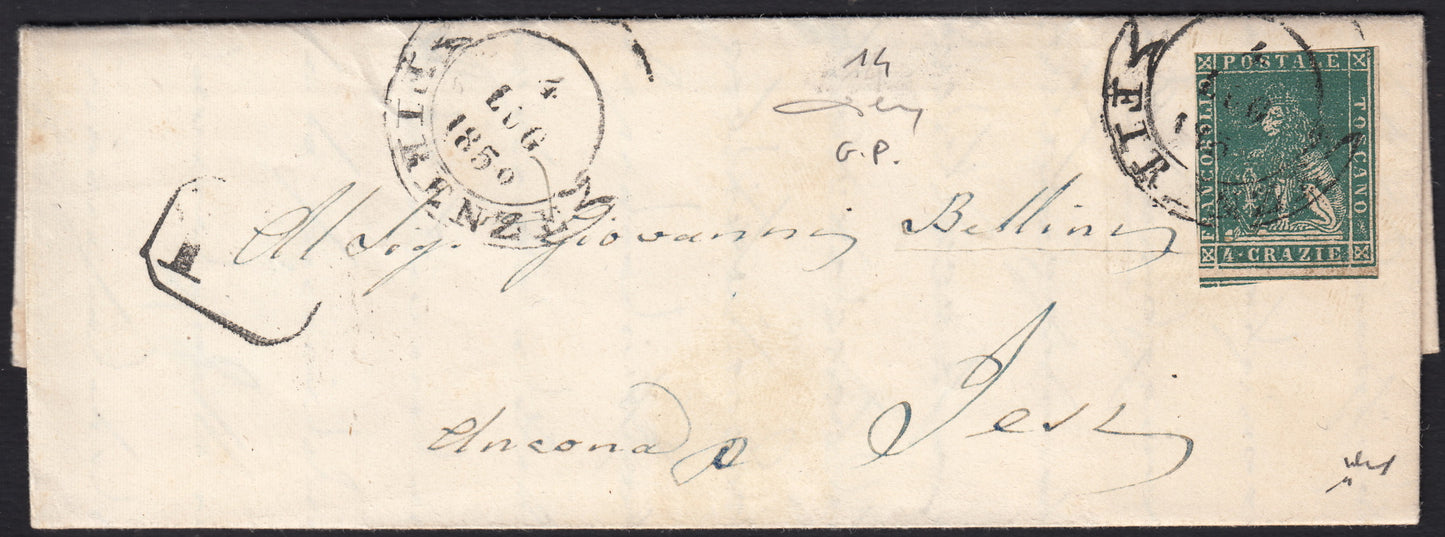 FIRENZE
4
LUG
1850
14
G.P.
POSTALE
FRANCOBOLLO
TOSCANO
4·CRAZIE
FIRENZE
4
LUG
185
Al Sig. Giovanni Bellini
Ancona p Jesi